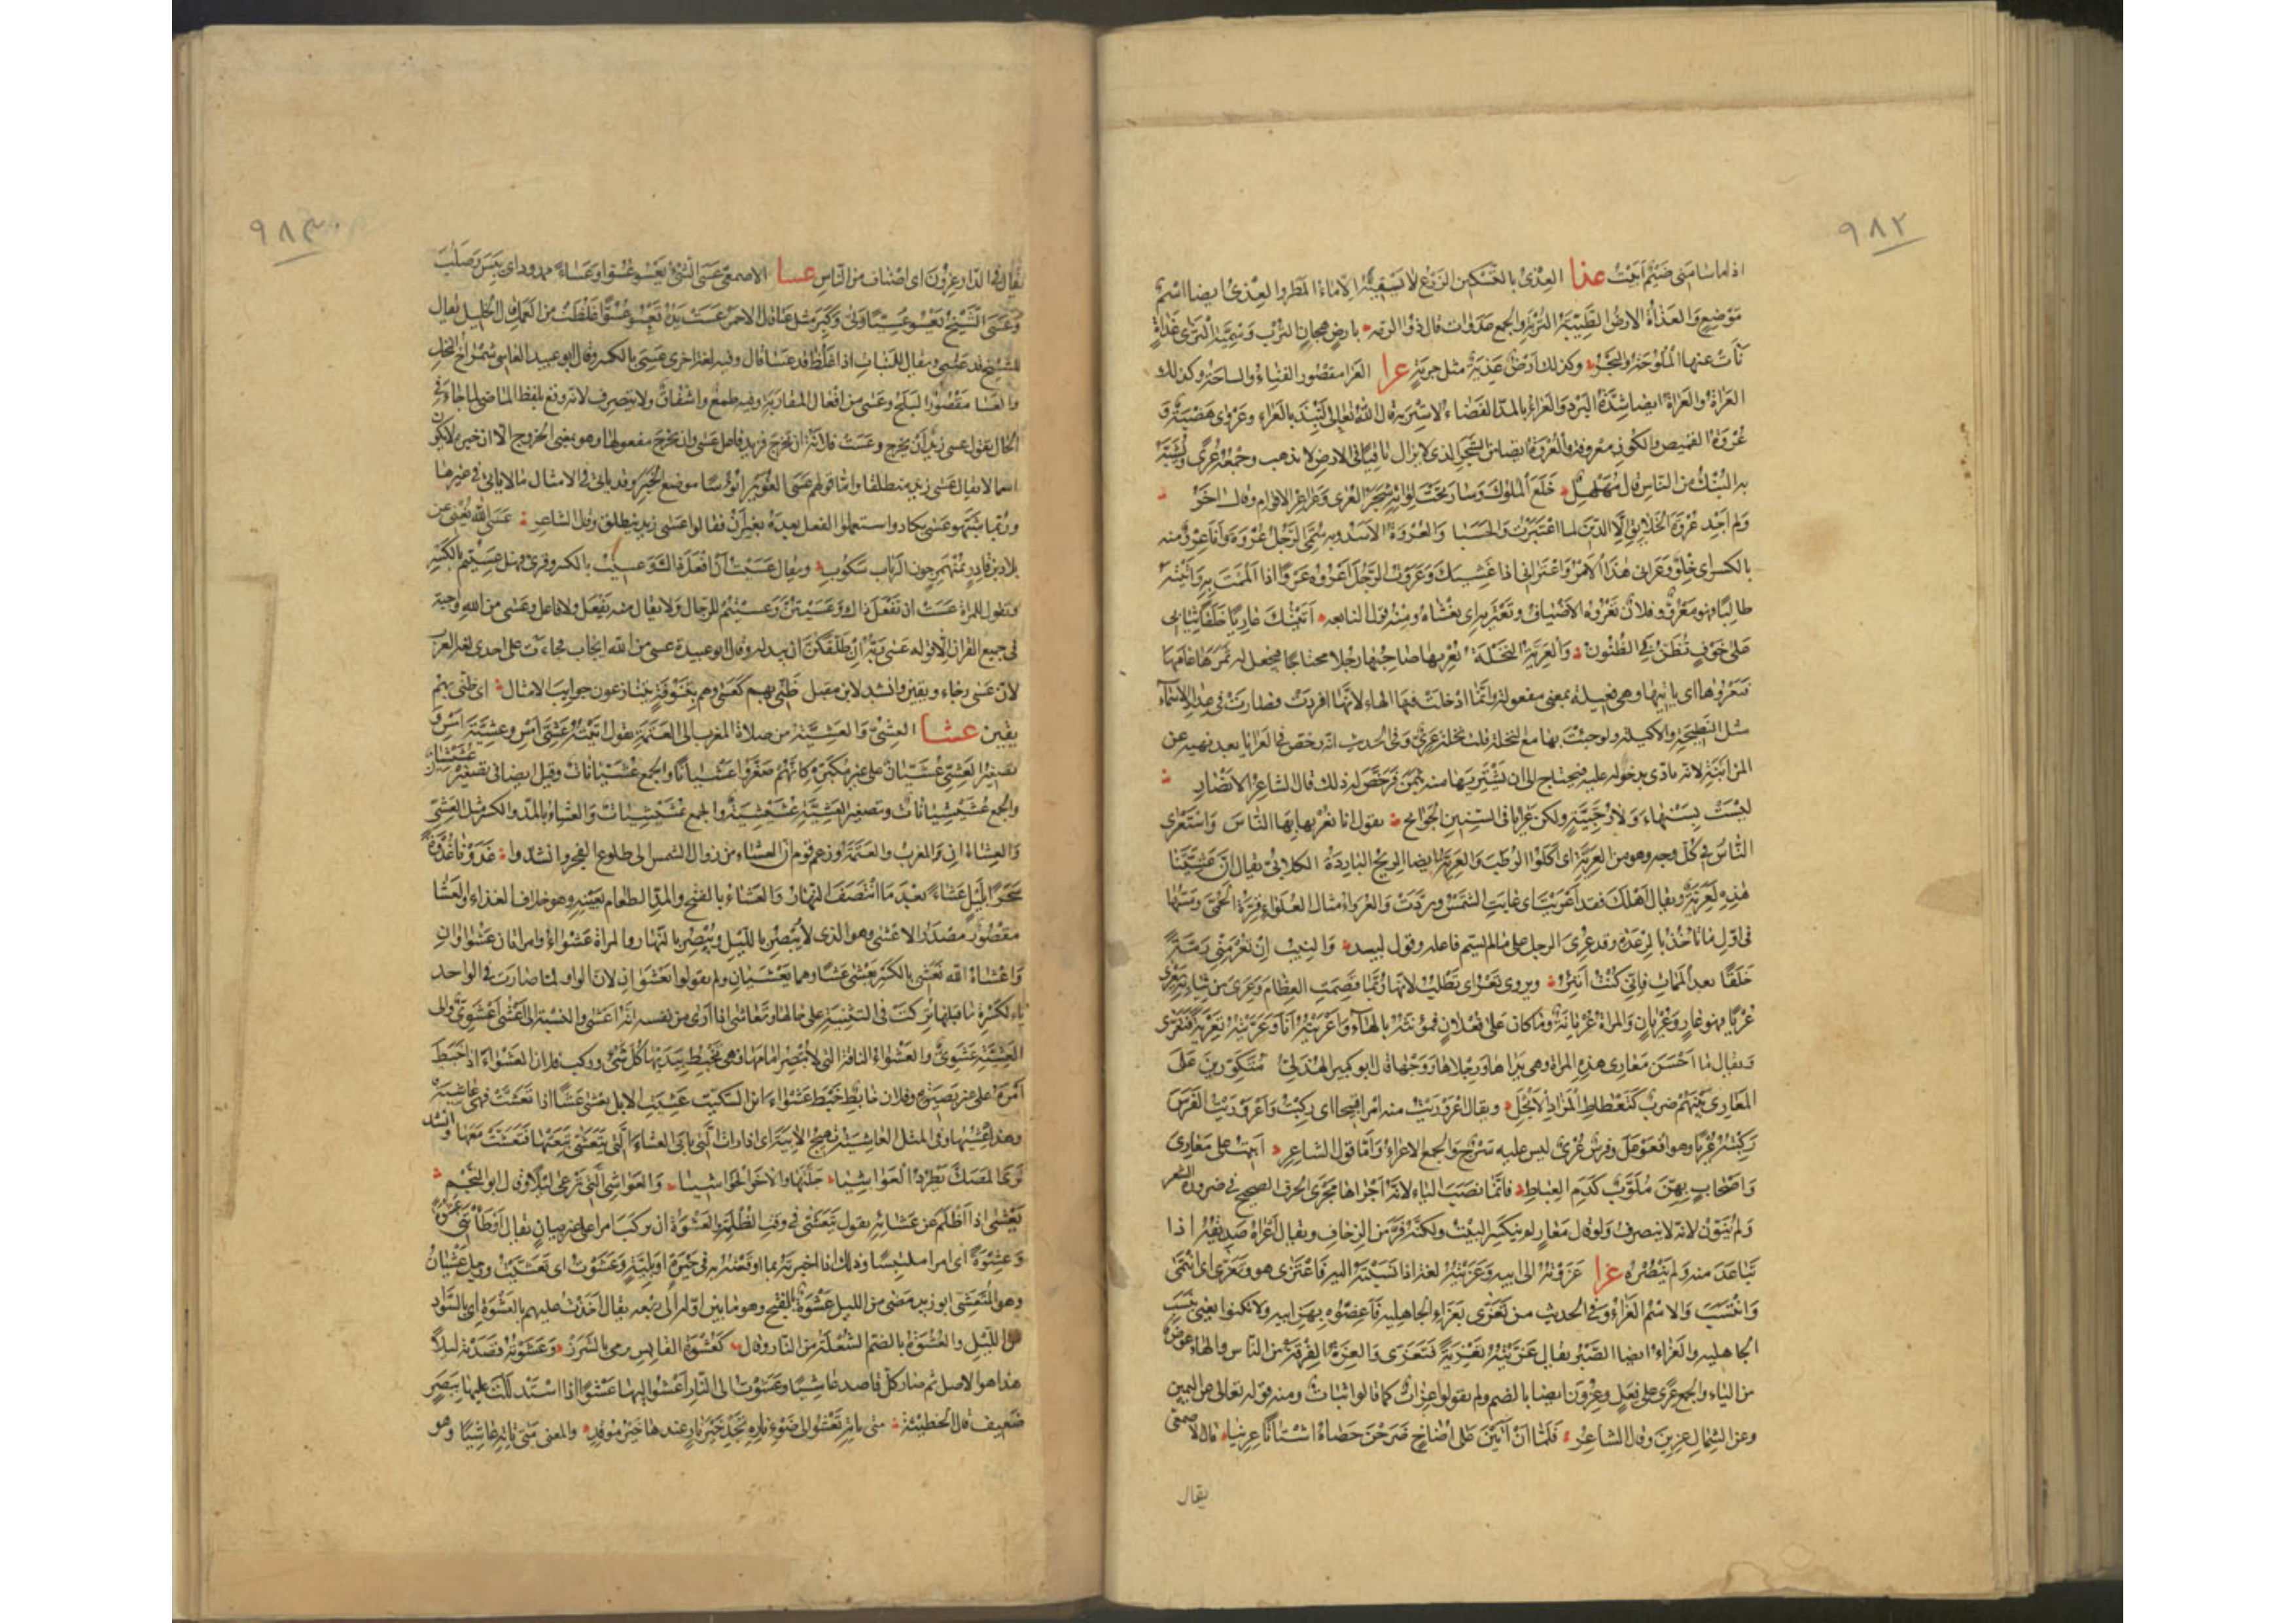 ٩٨٢
اذاما سامنى ضيم ابيت عذا العِذْىُ بالتسكين الزرع لا يسقيه الا ماء المطر والعذى ايضا اسم
موضع والعذاة الارض الطيبة التربة والجمع عذوات قال ذو الرمة بارض هجان الترب وسمية الثرى عذاة
نأت عنها الملوحة والبحر وكذلك ارض عذية مثل خربة عرا العرا مقصور الفناء والساحة وكذلك
العراة والعراة ايضا شدة البرد والعراء بالمد الفضاء لا ستر به قال الله تعالى لنبذ بالعراء وعروى هضبة و
عروة القميص والكوز معروفة والعروة ايضا من الشجر الذى لا يزال باقيا فى الارض لا يذهب وجمعه عُرًى ويشبه
به البنك من الناس قال مهلهل خلع الملوك وسار تحت لوائه شجر العرى وعراعر الاقوام وقال اخر
ولم اجد عروة الخلائق الا الدين لما اعتبرت والحسبا والعروة الاسد وبه سمى الرجل عروة وانا عرو منه
بالكسر اى خلو وعرانى هذا الامر واعترانى اذا غشيك وعروت الرجل اعروه عروا اذا الممت به واتيته
طالبا فهو معرو وفلان تعروه الاضياف وتعتريه اى تغشاه ومنه قول النابغه اتيتك عاريا خلقا ثيابى
على خوف تظن بى الظنون والعرية النخلة يعريها صاحبها رجلا محتاجا فيجعل له ثمرها عامها
فيعروها اى ياتيها وهى فعيلة بمعنى مفعولة وانما ادخلت فيها الهاء لانها افردت فصارت فى عداد الاسماء
مثل النطيحة والاكيلة ولو جئت بها مع النخلة قلت نخلة عرى وفى الحديث انه رخص فى العرايا بعد نهيه عن
المزابنة لانه تاذى بدخوله عليه فيحتاج الى ان يشتريها منه بثمن فرخص له ذلك قال شاعر الانصار
ليست بسنهاء ولا رجبية ولكن عرايا فى السنين الجوائح يقول انا نعريها الناس واستعرى
الناس فى كل وجه وهو من العرية اى اكلوا الرطب والعرية ايضا الريح الباردة الكلابى يقال ان عشيتنا
هذه لعرية ويقال اهلك فقد اعريت اى غابت الشمس وبردت والعرواء مثال الغلواء قرة الحمى ومسها
فى اول ما تاخذ بالرعدة وقد عرى الرجل على ما لم يسم فاعله وقول لبيد والنيب ان تعر منى رمة
خلقا بعد الممات فانى كنت اتئر ويروى تعر اى تطلب لانها ربما قضمت العظام وعرى من ثيابه يعرى
عريا فهو عار وعريان والمراة عريانة وما كان على فعلان فمؤنثه بالهاء واعريته انا وعريته تعرية فتعرى
ويقال ما احسن معارى هذه المراة وهى يداها ورجلاها ووجهها قال ابو كبير الهذلى متكورين على
المعارى بينهم ضرب كتعطاط المزاد الانجل ويقال اعروريت منه امرا قبيحا اى ركبت واعروريت الفرس
ركبته عريا وهو افعوعل وفرس عرى ليس عليه سرج والجمع الاعراء واما قول الشاعر ابيت على معارى
واضحات بهن ملوب كدم العباط فانما نصب الياء لانه اجراها مجرى الحرف الصحيح فى ضرورة الشعر
ولم ينون لانه لا ينصرف ولو قال معار لم ينكسر البيت ولكنه فر من الزحاف ويقال اعراه صديقه اذا
تباعد منه ولم ينصره عزا عزوته الى ابيه وعزيته لغة اذا نسبته اليه فاعتزى هو وتعزى اى انتمى
وانتسب والاسم العزاء وفى الحديث من تعزى بعزاء الجاهلية فاعضوه بهن ابيه ولا تكنوا يعنى بنسب
الجاهلية والعزاء ايضا الصبر يقال عزيته تعزية فتعزى والعزة الفرقة من الناس والهاء عوض
من الياء والجمع عزى على فعل وعزون ايضا بالضم ولم يقولوا عزات كما قالوا ثبات ومنه قوله تعالى عن اليمين
وعن الشمال عزين وقال الشاعر فلما ان اتين على اضاخ ضرحن حصاه اشتاتا عزينا قال الاصمعى
يقال
٩٨٣
يقال فى الدار عزون اى اصناف من الناس عسا الاصمعى عسى الشئ يعسو عسوا وعساء ممدود اى يبس وصلب
وعسى الشيخ يعسو عسيا ولى وكبر مثل عتا قال الاحمر عست يده تعسو عسوا غلظت من العمل قال الخليل يقال
للشيخ قد عسى ويقال للنبات اذا غلظ قد عسا قال وفيه لغة اخرى عسى بالكسر وقال ابو عبيد العاسى شمراخ النخل
والعسا مقصورا البلح وعسى من افعال المقاربة وفيه طمع واشفاق ولا يتصرف لانه وقع بلفظ الماضى لما جاء فى
الحال تقول عسى زيد ان يخرج وعست فلانة ان تخرج فزيد فاعل عسى وان يخرج مفعولها وهو بمعنى الخروج الا ان خبره لا يكون
اسما لا يقال عسى زيد منطلقا واما قولهم عسى الغوير ابؤسا موضع الخبر وقد ياتى فى الامثال ما لا ياتى فى غيرها
وربما شبهوا عسى بكاد واستعملوا الفعل بعده بغير ان فقالوا عسى زيد ينطلق وقال الشاعر عسى الله يغنى عن
بلاد بن قادر بمنهمر جون الرباب سكوب ويقال عسيت ان افعل ذاك وعسيت بالكسر وقرئ فهل عسيتم بالكسر
وتقول للمراة عست ان تفعل ذاك وعسيتن وعسيتم للرجال ولا يقال منه يفعل ولا فاعل وعسى من الله واجبة
فى جميع القران الا قوله عسى ربه ان طلقكن ان يبدله وقال ابو عبيدة عسى من الله ايجاب فجاءت على احدى لغة العرب
لان عسى رجاء ويقين وانشد لابن مقبل ظنى بهم كعسى وهم بتنوفة يتنازعون جوايب الامثال اى ظنى بهم
يقين عشا العشى والعشية من صلاة المغرب الى العتمة تقول اتيته عشى امس وعشية امس و
تصغير العشى عشيان على غير مكبره كانهم صغروا عشيانا والجمع عشيانات وقيل ايضا فى تصغيره عشيشيان
والجمع عشيشيانات وتصغير العشية عشيشية والجمع عشيشيات والعشاء بالمد والكسر مثل العشى
والعشاءان المغرب والعتمة وزعم قوم ان العشاء من زوال الشمس الى طلوع الفجر وانشدوا غدونا غدوة
سحرا بليل عشاء بعد ما انتصف النهار والعشاء بالفتح والمد الطعام بعينه وهو خلاف الغداء والعشا
مقصور مصدر الاعشى وهو الذى لا يبصر بالليل ويبصر بالنهار والمراة عشواء وامراتان عشواوان
واعشاه الله فعشى بالكسر يعشى عشا وهما يعشيان ولم يقولوا يعشوان لان الواو لما صارت فى الواحد
ياء لكسرة ما قبلها تركت فى التثنية على حالها وتعاشى اذا ارى من نفسه انه اعشى والنسبة الى اعشى اعشوى والى
العشية عشوى والعشواء الناقة التى لا تبصر امامها فهى تخبط بيديها كل شئ وركب فلان العشواء اذا خبط
امره على غير بصيرة وفلان خابط خبط عشواء ابن السكيت عشى الابل يعشى عشا اذا تعشت فهى عاشية
وهذا عشيها وفى المثل العاشية تهيج الآبية اى اذا رات التى تابى العشاء التى تتعشى تبعتها فتعشت معها وانشد
ترى المصك يطرد العواشيا جلتها والاخر الحواشيا والعواشى التى ترعى ليلا قال ابو النجم
يعشى اذا اظلم عن عشائه يقول يتعشى فى وقت الظلمة والعشوة ان يركب امرا على غير بيان يقال اوطاتنى عشوة
وعشوة اى امرا ملتبسا وذلك اذا اخبرته بما اوقعته به فى حيرة او بلية وعشوت اى تعشيت ورجل عشيان
وهو المتعشى ابو زيد مضى من الليل عشوة بالفتح وهو ما بين اوله الى ربعه يقال اخذت عليهم بالعشوة اى بالسواد
من الليل والعشوة بالضم الشعلة من النار وقال كعشوة القابس ترمى بالشرر وعشوته قصدته ليلا
هذا هو الاصل ثم صار كل قاصد عاشيا وعشوت الى النار اعشوا اليها عشوا اذا استدللت عليها ببصر
ضعيف قال الحطيئة متى تاته تعشو الى ضوء ناره تجد خير نار عندها خير موقد والمعنى متى تاته عاشيا وهو